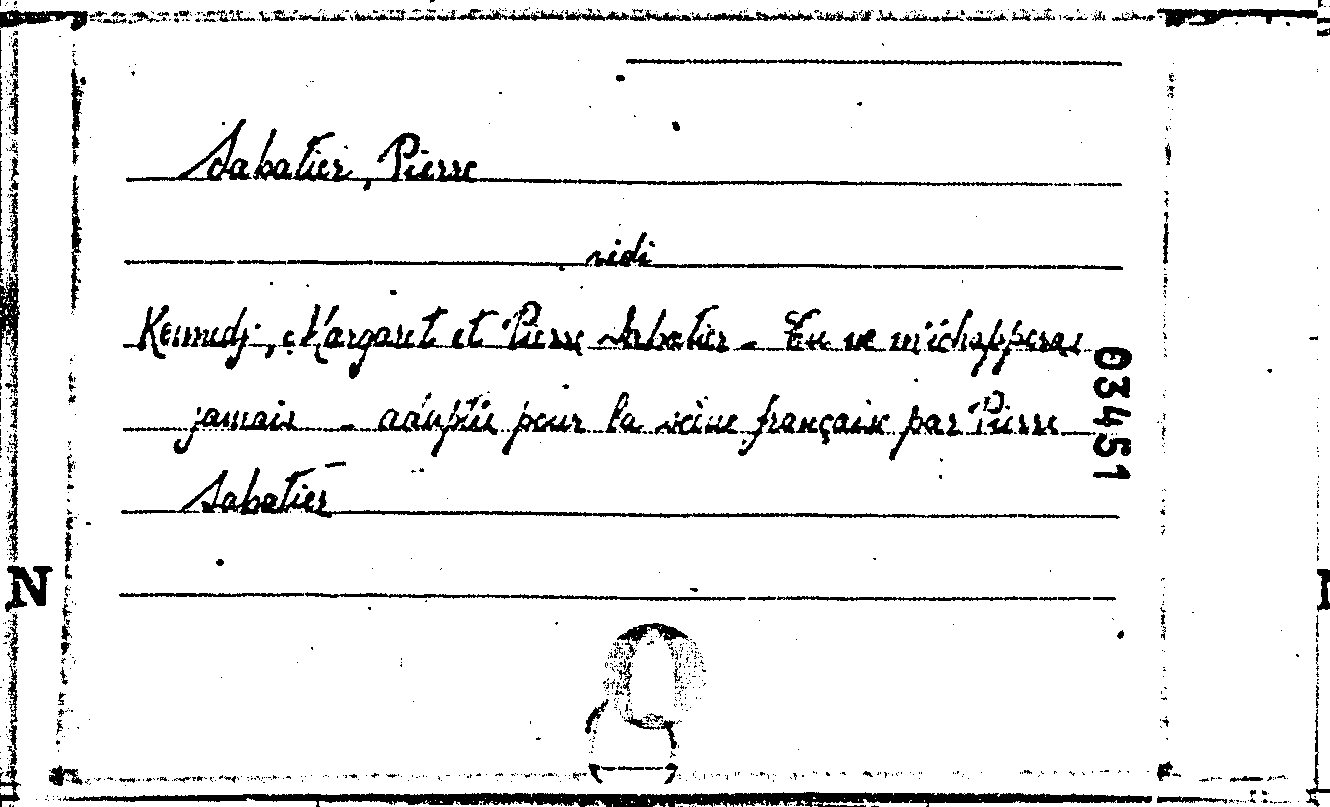 Sabatier, Pierre
vidi
Kennedy, Margaret et Pierre Sabatier - Tu ne m'échapperas
jamais - adaptée pour la scène française par Pierre
Sabatier
03451
N